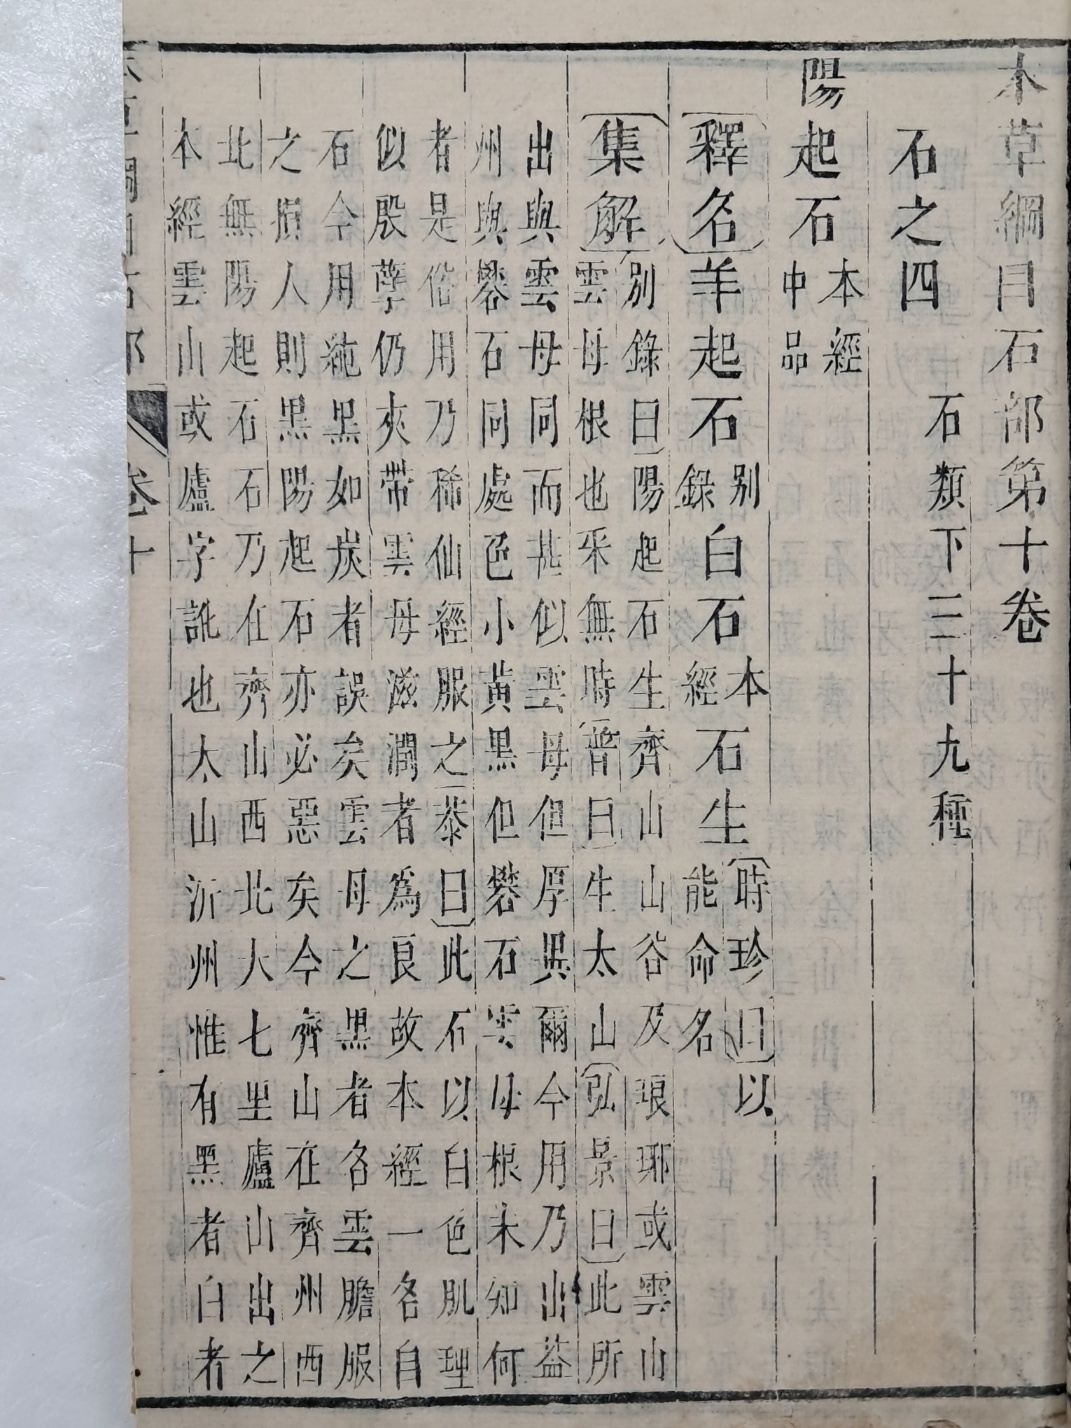 本草綱目石部第十卷
石之四 石類下三十九種
陽起石 本經
中品
釋名 羊起石 別錄 白石 本經 石生 時珍曰以
能命名
集解 別錄曰陽起石生齊山山谷及琅琊或雲山
雲母根也采無時普曰生太山弘景曰此所
出與雲母同而甚似雲母但厚異爾今用乃出益
州與礜石同處色小黃黑但礬石雲母根未知何
者是俗用乃稀仙經服之恭曰此石以白色肌理
似殷孽仍夾帶雲母滋潤者為良故本經一名白
石今用純黑如炭者誤矣雲母之黑者名雲膽服
之損人則黑陽起石亦必惡矣今齊山在齊州西
北無陽起石石乃在齊山西北六七里盧山出之
本經雲山或盧字訛也太山沂州惟有黑者白者
卷十